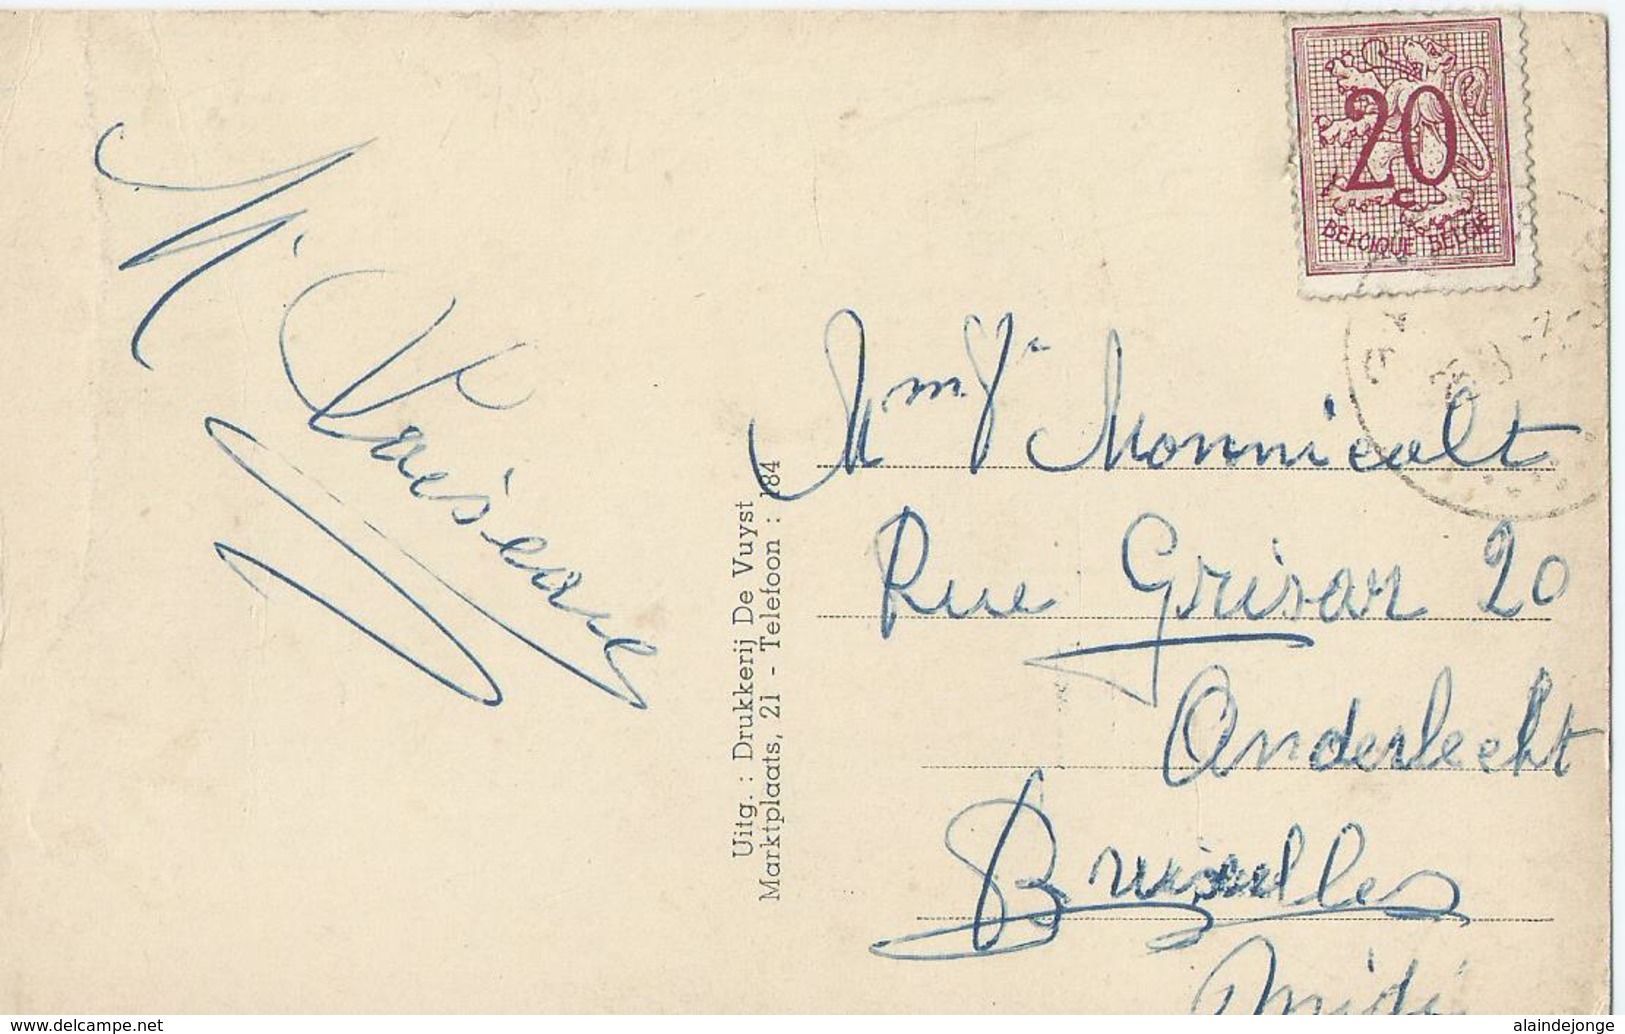 20
BELGIQUE BELGIE
Uitg. : Drukkerij De Vuyst
Marktplaats, 21 - Telefoon : 184
Rue Grisar 20
Anderlecht
Bruxelles
Midi
delcampe.net
alaindejonge